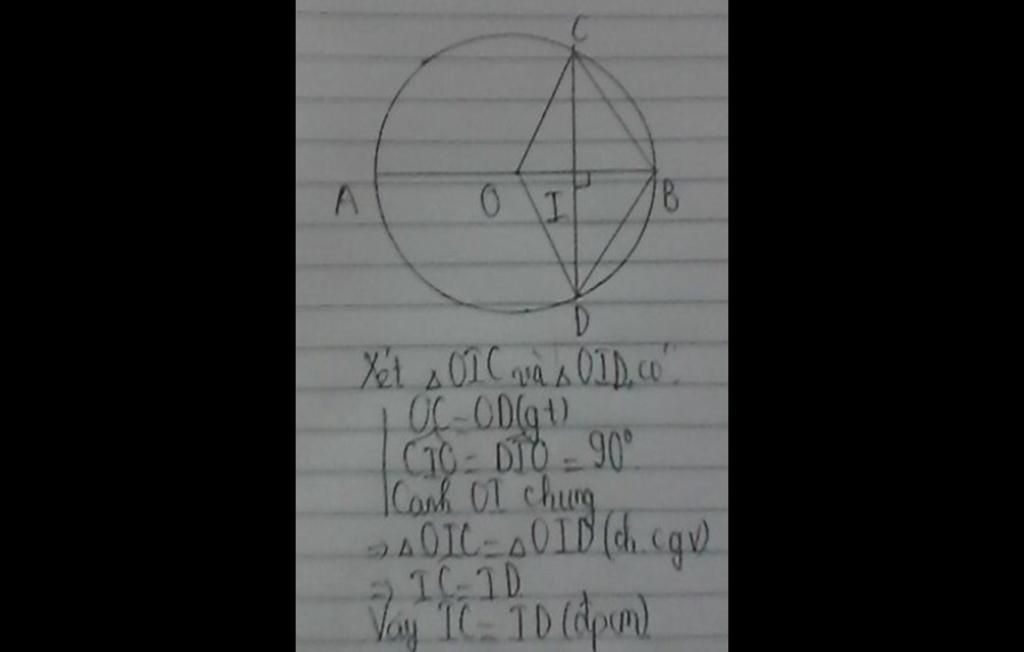 C
A O I B
D
Xét △OIC và △OID, có:
OC = OD (gt)
CIO = DIO = 90°
Cạnh OI chung
⇒ △OIC = △OID (ch. cgv)
⇒ IC = ID
Vậy IC = ID (đpcm)